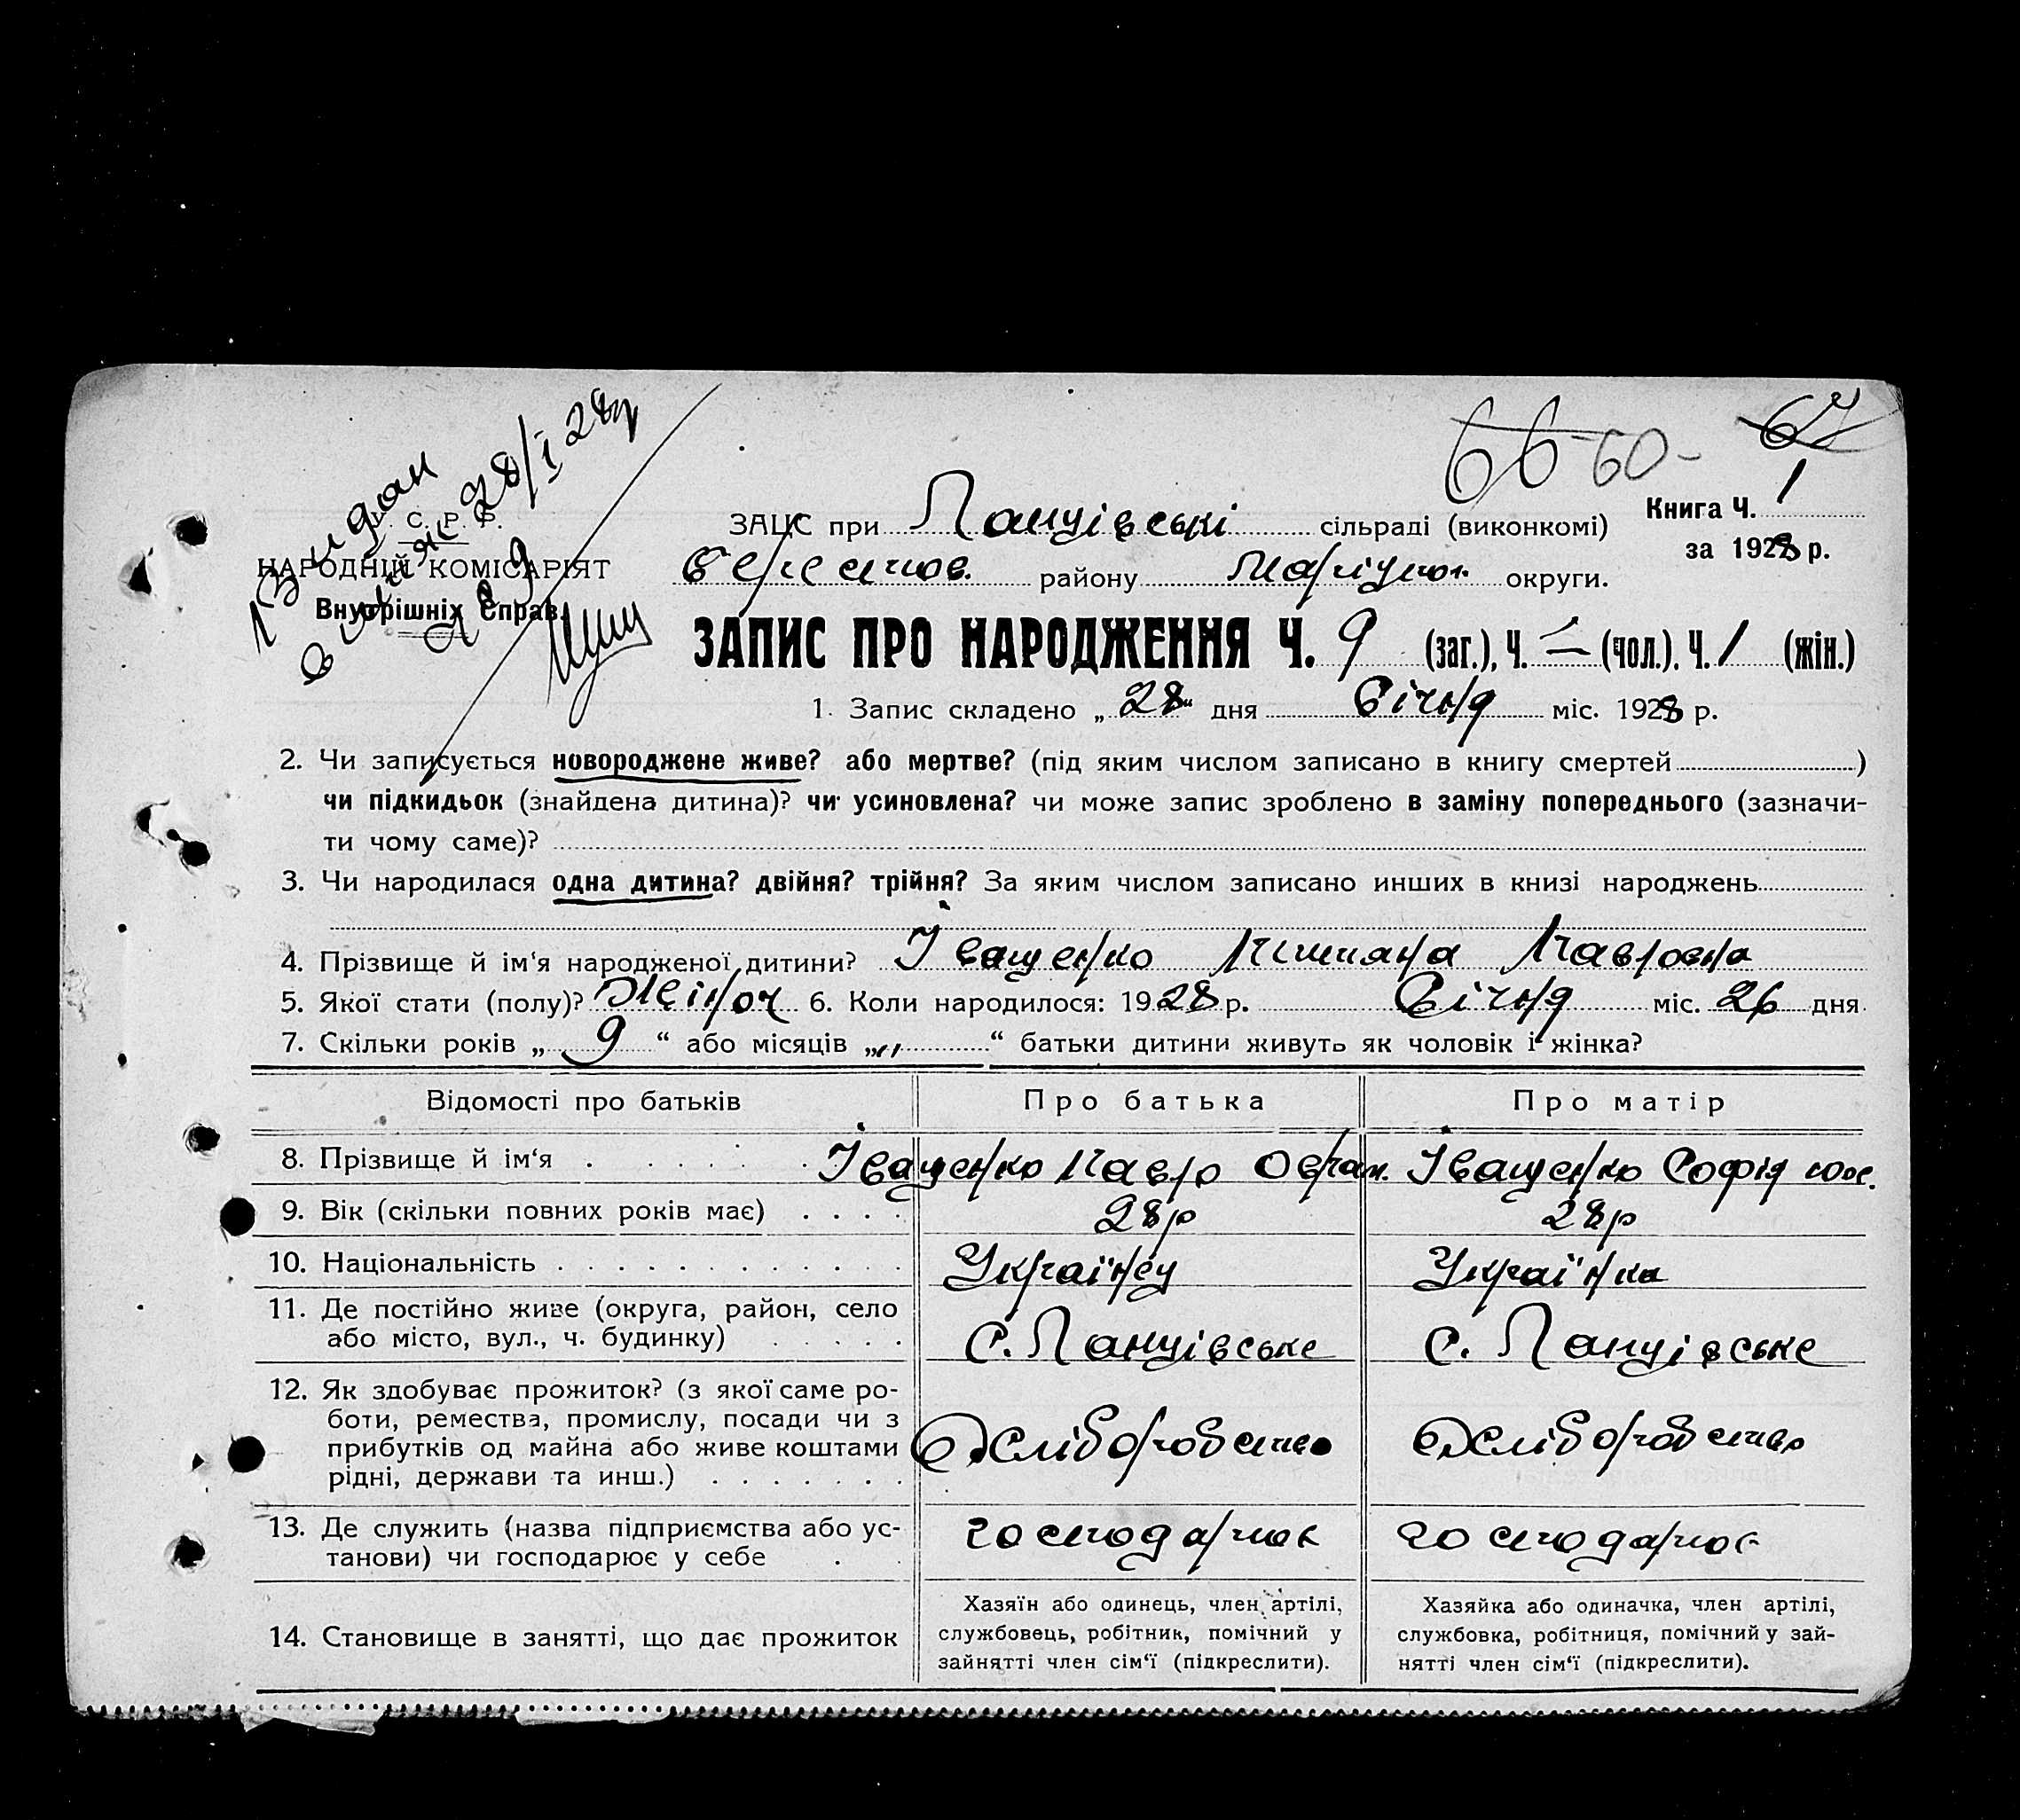 66 60- 67
Видан
витяг 28/I 28р
№ 9
У. С. Р. Р.
НАРОДНІЙ КОМІСАРІЯТ
Внутрішніх Справ.
ЗАЦС при Ланцівські сільраді (виконкомі)
Книга Ч. 1
за 1928 р.
Берестов. району Маріупол. округи.
ЗАПИС ПРО НАРОДЖЕННЯ Ч. 9 (заг.), Ч. — (чол.). Ч. 1 (жін.)
1. Запис складено „ 28 " дня Січня міс. 1928 р.
2. Чи записується новороджене живе? або мертве? (під яким числом записано в книгу смертей )
чи підкидьок (знайдена дитина)? чи усиновлена? чи може запис зроблено в заміну попереднього (зазначи-
ти чому саме)?
3. Чи народилася одна дитина? двійня? трійня? За яким числом записано инших в книзі народжень
4. Прізвище й ім'я народженої дитини? Іващенко Павловна
5. Якої стати (полу)? Жіноч 6. Коли народилося: 1928 р. Січня міс. 26 дня
7. Скільки років „ 9 “ або місяців „ " “ батьки дитини живуть як чоловік і жінка?
Відомості про батьків Про батька Про матір
8. Прізвище й ім'я Іващенко Павло Оврам. Іващенко Софія Йос.
9. Вік (скільки повних років має) 28р 28р
10. Національність Українец Українка
11. Де постійно живе (округа, район, село
або місто, вул., ч. будинку) С. Ланцівське С. Ланцівське
12. Як здобуває прожиток? (з якої саме ро-
боти, ремества, промислу, посади чи з
прибутків од майна або живе коштами
рідні, держави та инш.) Хліборобство Хліборобство
13. Де служить (назва підприємства або ус-
танови) чи господарює у себе господарює господарює
14. Становище в занятті, що дає прожиток
Хазяїн або одинець, член артілі,
службовець, робітник, помічний у
зайнятті член сім'ї (підкреслити).
Хазяйка або одиначка, член артілі,
службовка, робітниця, помічний у зай-
нятті член сім'ї (підкреслити).